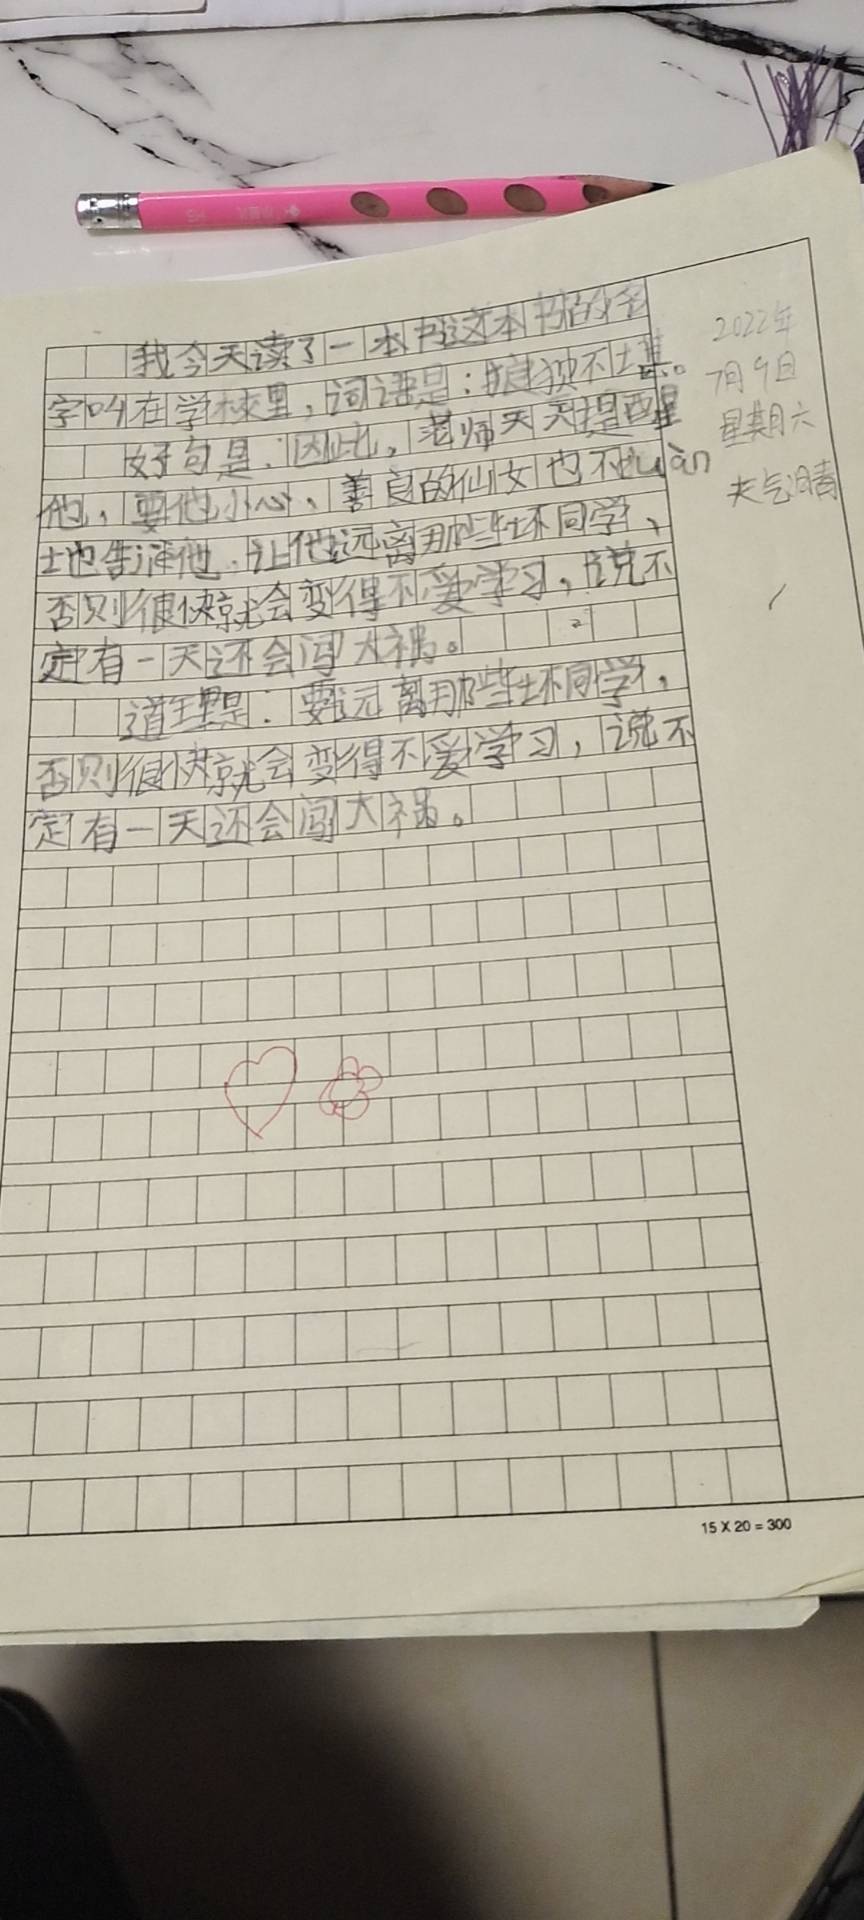 我今天读了一本书这本书的名
字叫在学校里，词语是：狼狈不堪。
好句是：因此，老师天天提醒
他，要他小心，善良的仙女也不duàn
地告诫他．让他远离那些坏同学、
否则很快就会变得不爱学习，说不
定有一天还会闯大祸。
道理是：要远离那些坏同学，
否则很快就会变得不爱学习，说不
定有一天还会闯大祸。
2022年
7月9日
星期六
天气晴
15 X 20 = 300